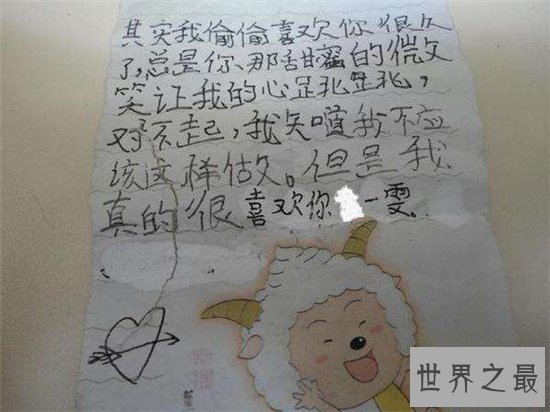 其实我偷偷喜欢你很久
了,总是你、那甜蜜的微文
笑让我的心足兆足兆,
对不起,我矢道我不应
该这样做。但是我
真的很喜欢你 一雯.
世界之最